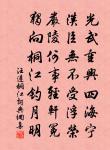 光武重興四海寧
漢臣無不受浮榮
嚴陵何事輕軒冕
獨向桐江釣月明
汪遵桐江